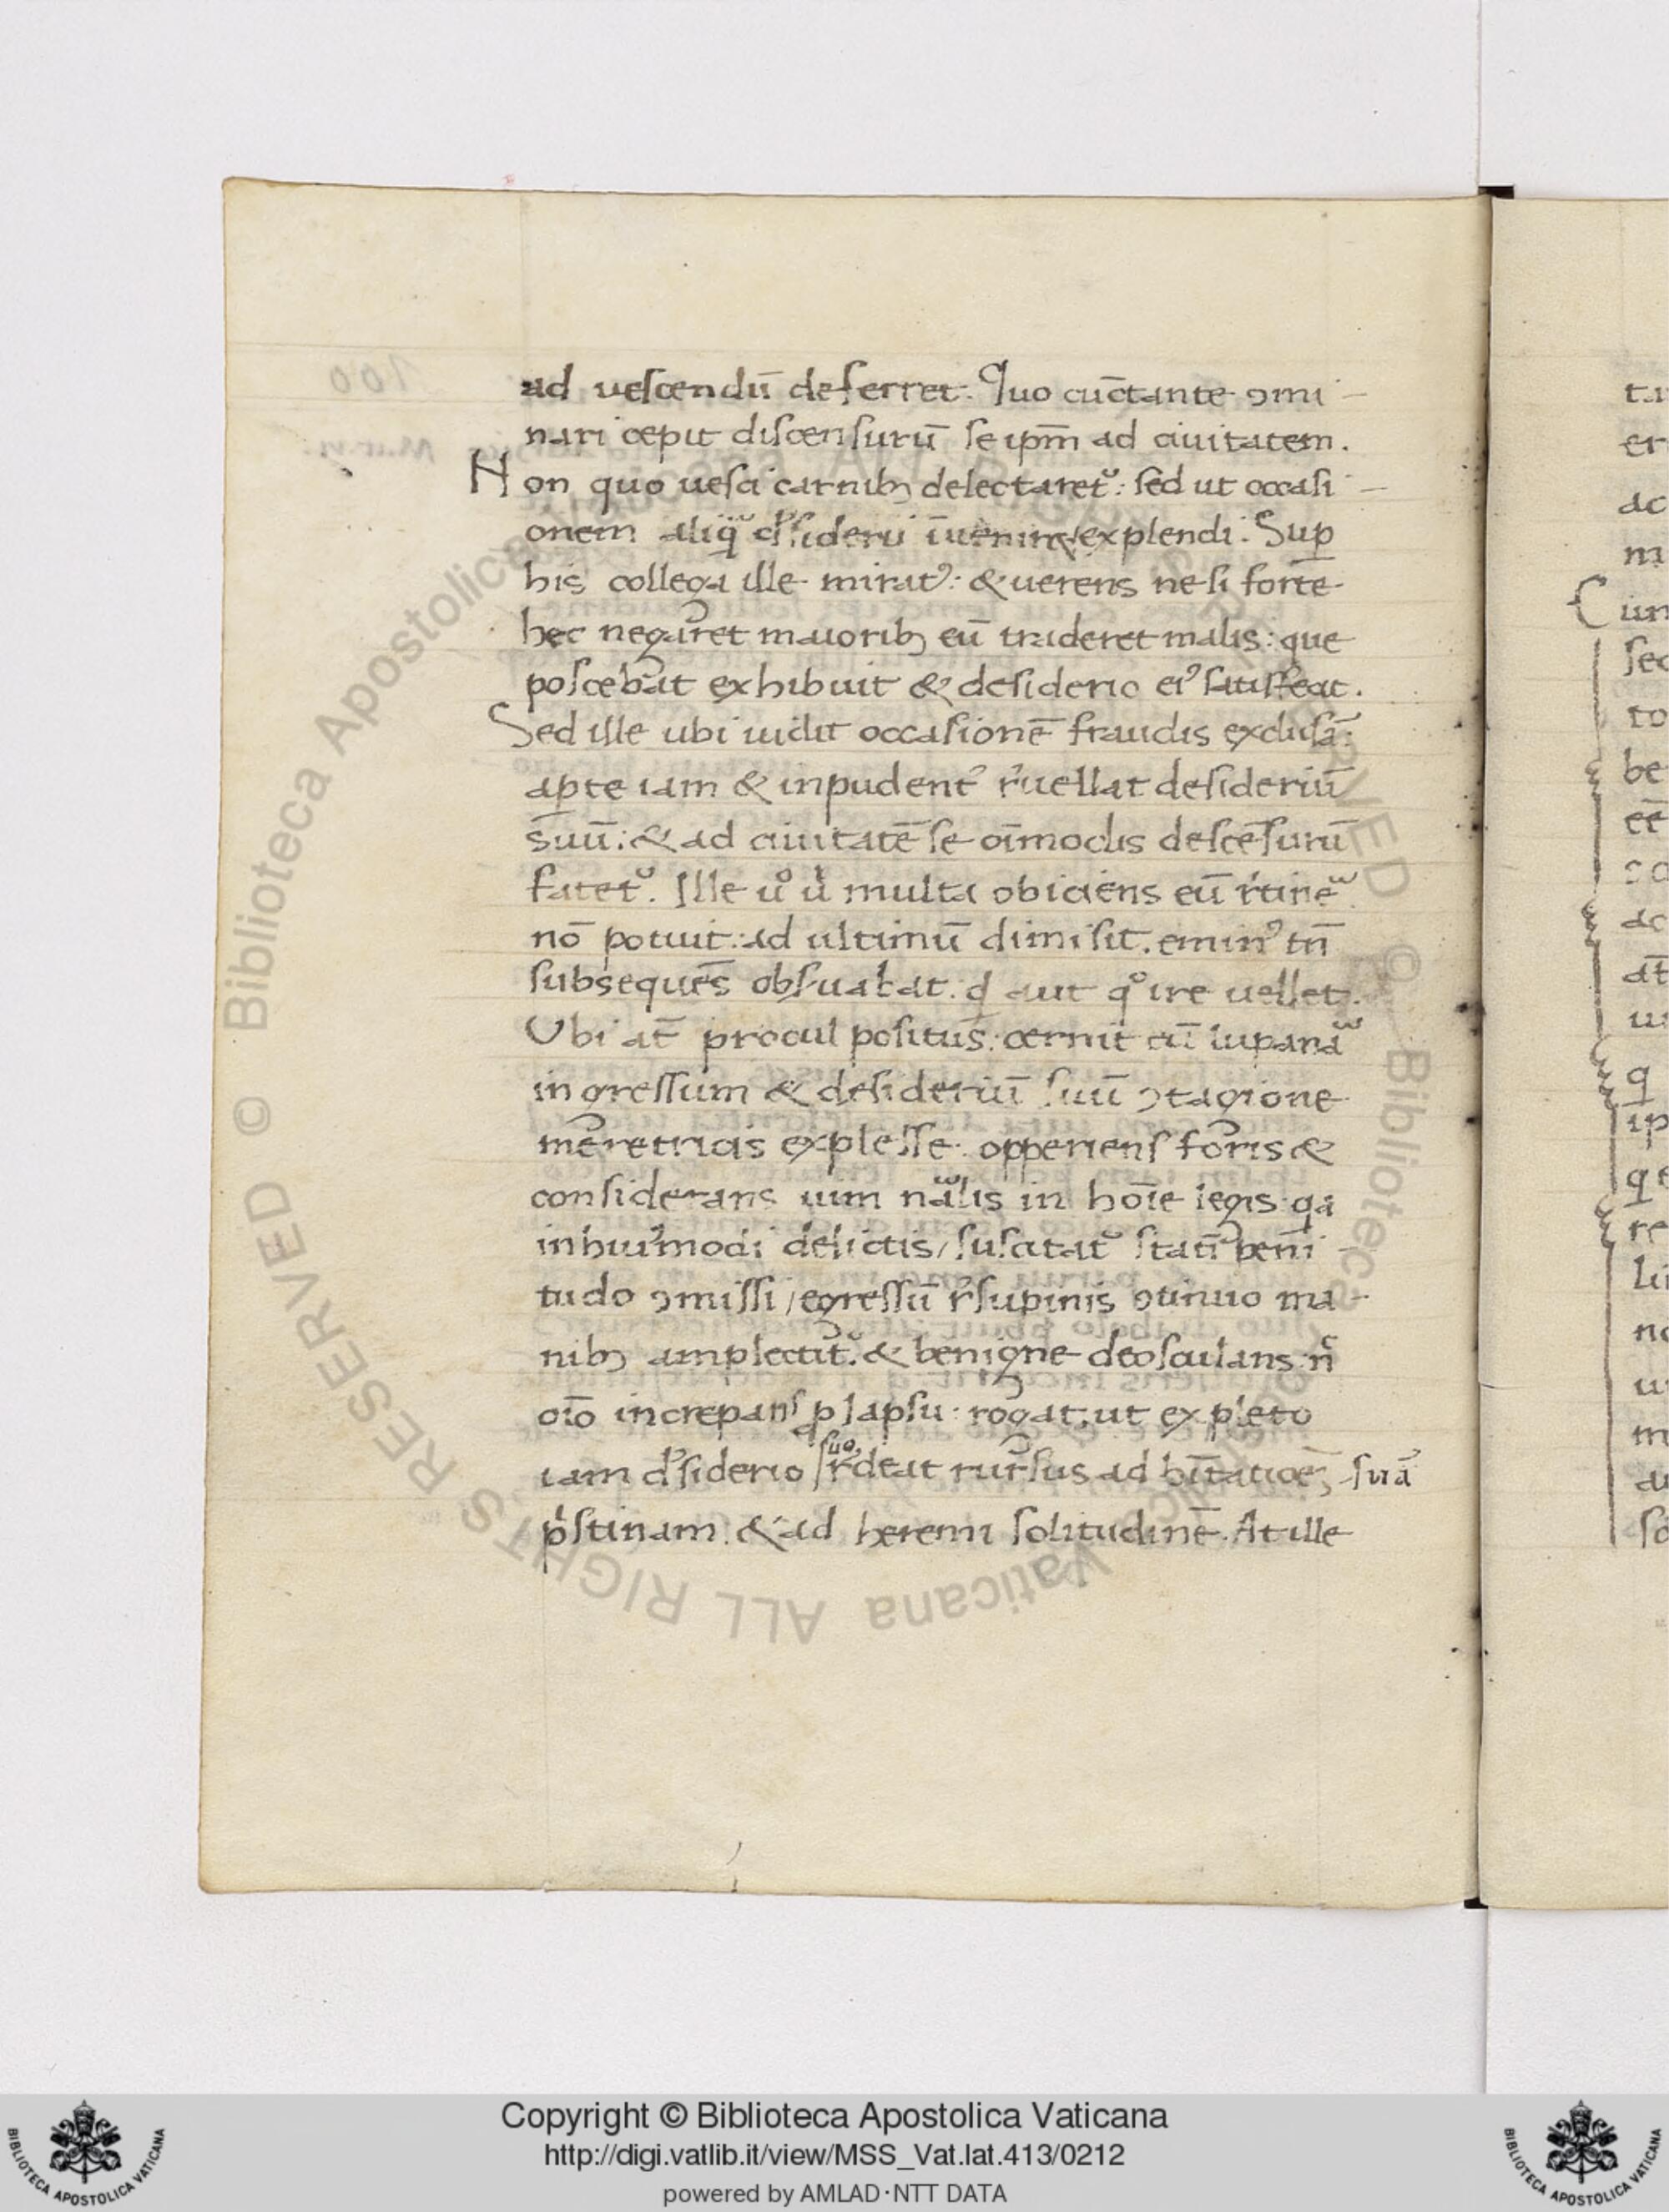 ad uescendū deferret. Quo cūctante ꝯmi
nari cepit discensurū se ipm̄ ad ciuitatem.
Non quo uesci carnibꝫ delectaretᷣ: sed ut occasi
onem aliqᷓ d͛siderii īuenire explendi. Suꝑ
his collega ille miratꝰ: & uerens ne si forte
hec negaret maioribꝫ eū traderet malis: que
poscebat exhibuit & desiderio eiꝰ satisfecit.
Sed ille ubi uidit occasionē fraudis exclusā:
aꝑte iam & inpudent͛ r͛uellat desideriū
suū: & ad ciuitatē se oīmodis descēsurū
fatetᷣ. Ille uͦ multa obiciens eū r͛tinēͣ
nō potuit: ad ultimū dimisit. eminꝰ tn̄
subsequēs obs̄uabat. qͥ aut qͦ ire uellet.
Ubi at̄ procul positus: cernit eū lupanaͣ
ingressum & desideriū suū ꝯtagione
meretricis explesse. opperiens foris &
considerans uim nͣalis in hoīe legis: qa
in huiꝰmodi delictis, suscitatᷣ statī peni
tudo ꝯmissi, egressū r͛supinis ꝯtinuo ma
nibꝫ amplectitᷣ. & benigne deosculans: n̄
oīo increpans ꝓ lapsu: rogat, ut expleto
iam d͛siderio suo, r͛deat rursus ad hītatioēꝫ suā
pͥstinam. & ad heremi solitudinē. At ille
ALL RIGHTS RESERVED © Biblioteca Apostolica Vaticana
Copyright © Biblioteca Apostolica Vaticana
http://digi.vatlib.it/view/MSS_Vat.lat.413/0212
powered by AMLAD·NTT DATA
BIBLIOTECA APOSTOLICA VATICANA
BIBLIOTECA APOSTOLICA VATICANA